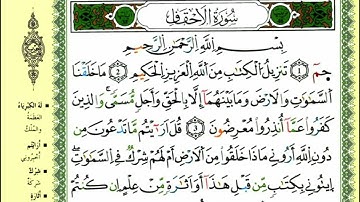 سُورَةُ الأَحْقَافِ
بِسْمِ اللَّهِ الرَّحْمَٰنِ الرَّحِيمِ
حمٓ ۝١ تَنزِيلُ الْكِتَابِ مِنَ اللَّهِ الْعَزِيزِ الْحَكِيمِ ۝٢ مَا خَلَقْنَا
السَّمَاوَاتِ وَالْأَرْضَ وَمَا بَيْنَهُمَا إِلَّا بِالْحَقِّ وَأَجَلٍ مُّسَمًّى ۚ وَالَّذِينَ
كَفَرُوا عَمَّا أُنذِرُوا مُعْرِضُونَ ۝٣ قُلْ أَرَأَيْتُم مَّا تَدْعُونَ مِن
دُونِ اللَّهِ أَرُونِي مَاذَا خَلَقُوا مِنَ الْأَرْضِ أَمْ لَهُمْ شِرْكٌ فِي السَّمَاوَاتِ ۖ
ائْتُونِي بِكِتَابٍ مِّن قَبْلِ هَٰذَا أَوْ أَثَارَةٍ مِّنْ عِلْمٍ إِن كُنتُمْ
لَهُ الْكِبْرِيَاءُ
العَظَمَةُ
وَالمُلْكُ
أَرَأَيْتُمْ
أَخْبِرُونِي
شِرْكٌ
شَرِكَةٌ
أَثَارَةٍ